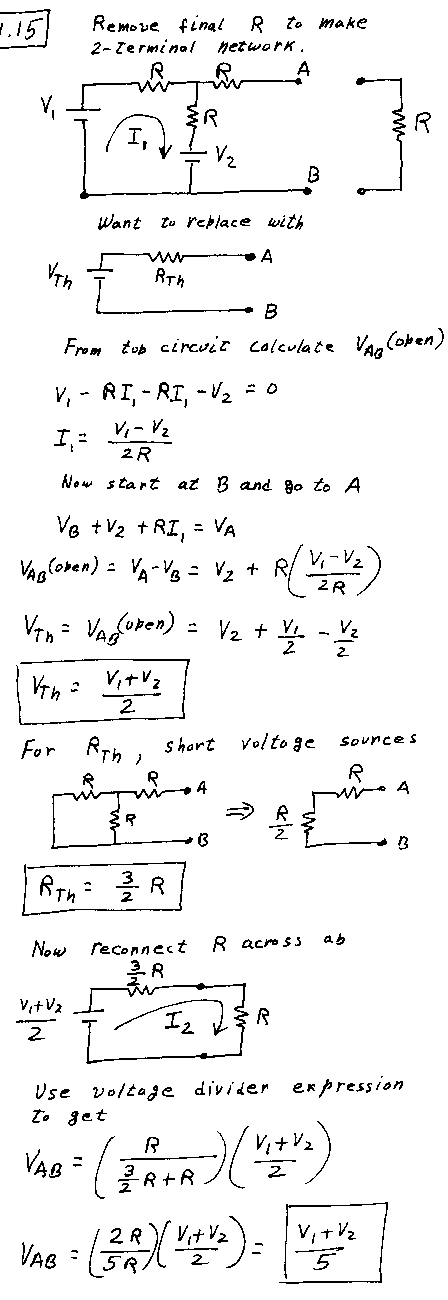 1.15
Remove final R to make
2-Terminal network.
R R A
V₁ I₁ R V₂ B R
Want to replace with
V_Th R_Th A
B
From top circuit calculate V_AB(open)
V₁ - RI₁ - RI₁ - V₂ = 0
I₁ = (V₁ - V₂)/2R
Now start at B and go to A
V_B + V₂ + RI₁ = V_A
V_AB(open) = V_A - V_B = V₂ + R((V₁ - V₂)/2R)
V_Th = V_AB(open) = V₂ + V₁/2 - V₂/2
V_Th = (V₁ + V₂)/2
For R_Th, short voltage sources
R R A R B ⇒ R A R/2 B
R_Th = 3/2 R
Now reconnect R across ab
3/2 R
(V₁ + V₂)/2 I₂ R
Use voltage divider expression
to get
V_AB = (R/(3/2 R + R))((V₁ + V₂)/2)
V_AB = (2R/5R)((V₁ + V₂)/2) = (V₁ + V₂)/5